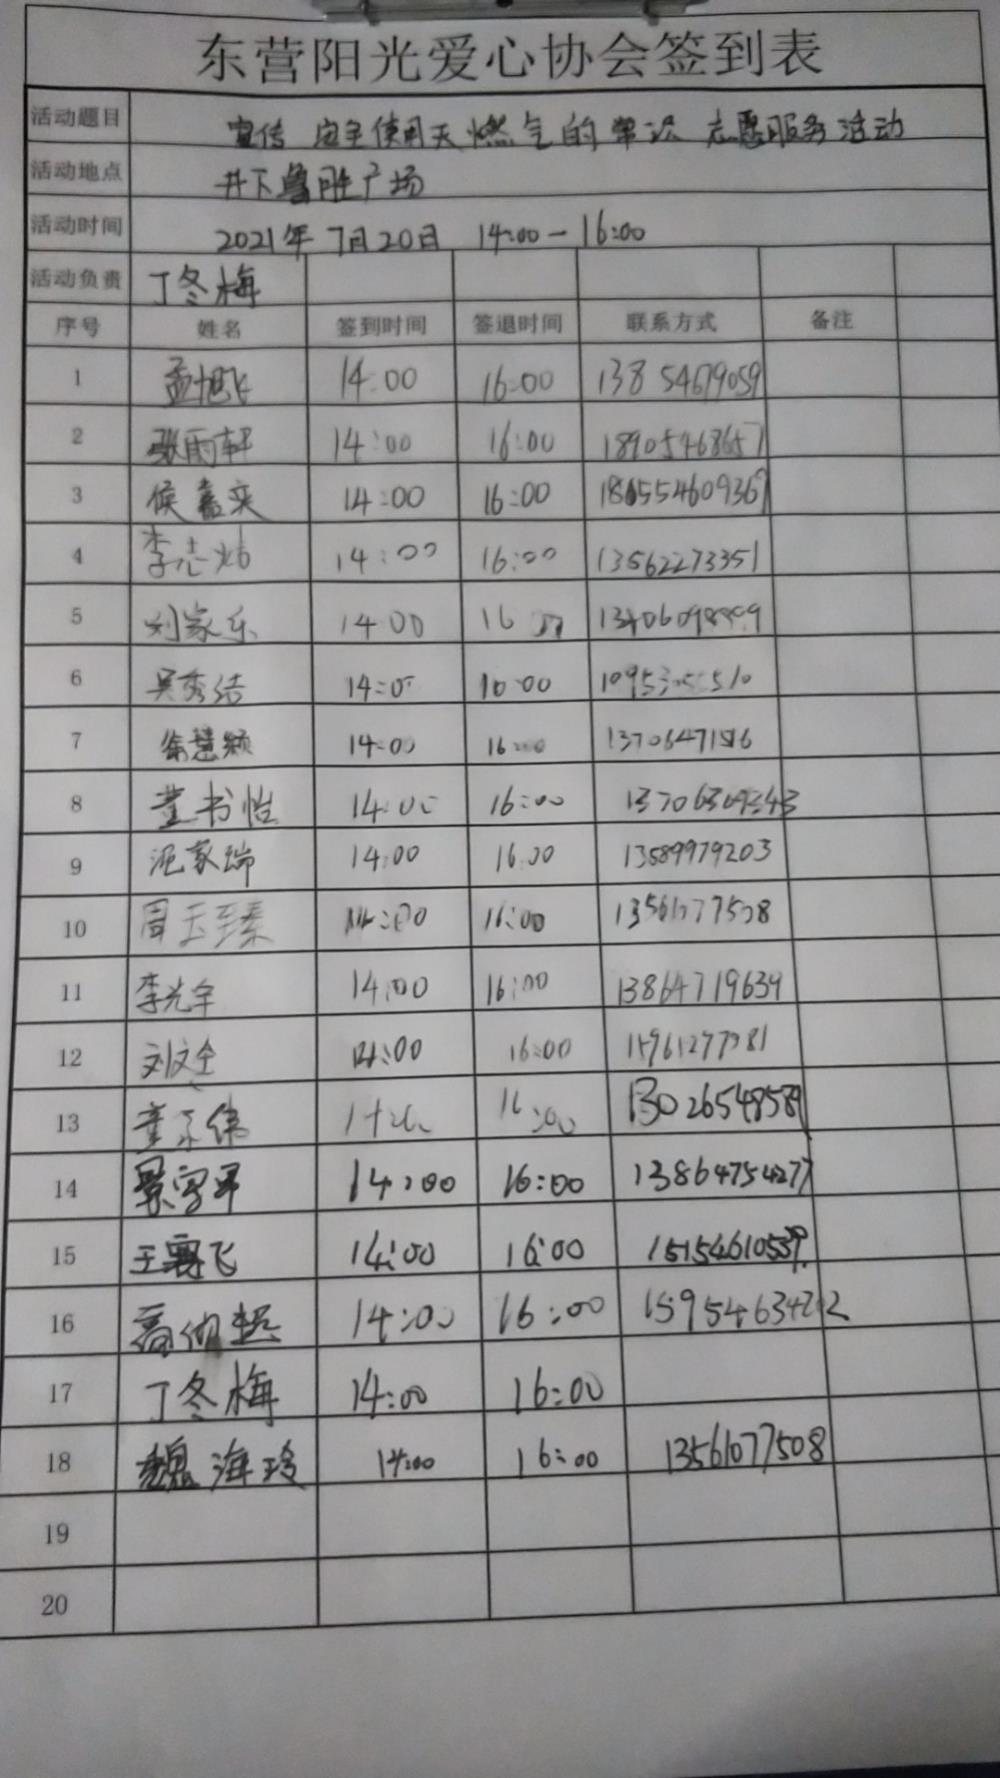 东营阳光爱心协会签到表
活动题目 宣传 安全使用天燃气的常识 志愿服务活动
活动地点 井下鲁胜广场
活动时间 2021年7月20日 14:00-16:00
活动负责 丁冬梅
序号 姓名 签到时间 签退时间 联系方式 备注
1 孟旭飞 14:00 16:00 13854679059
2 张雨轩 14:00 16:00 18905468657
3 侯 14:00 16:00
4 李志炜 14:00 16:00 13562273351
5 刘家乐 14:00 16
6 吴秀洁 14:0 16:00
7 徐慧颖 14:00 16:00
8 董书怡 14:00 16:00
9 家瑞 14:00 16:00 13589979203
10 周玉 16:00
11 李光宇 14:00 16:00 13864719639
12 刘文全 14:00 16:00
13 董 伟 16:00 13026548589
14 景 14:00 16:00 13864754277
15 王 飞 14:00 16:00
16 高 14:00 16:00
17 丁冬梅 14:00 16:00
18 魏海玲 14:00 16:00 13561077508
19
20